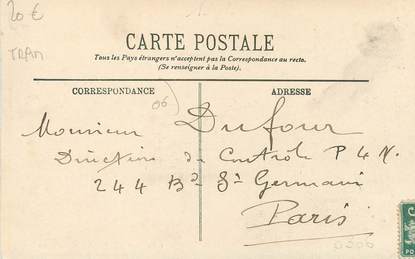 20 €
TRAM
CARTE POSTALE
Tous les Pays étrangers n'acceptent pas la Correspondance au recto.
(Se renseigner à la Poste).
CORRESPONDANCE
ADRESSE
06
Monsieur Dufour
Directeur du Contrôle P & N.
244 Bd St Germain
Paris